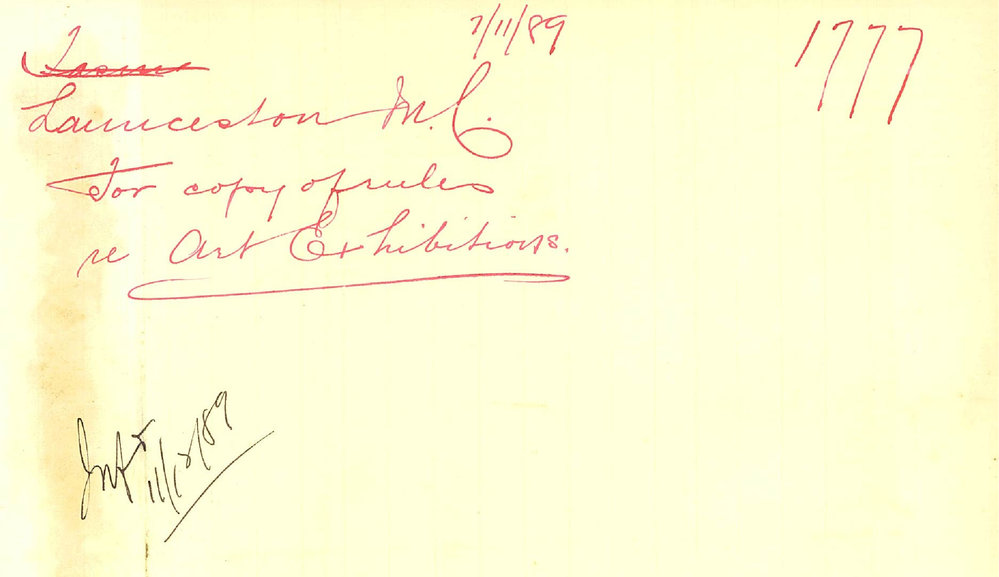 7/11/89
1777
Launceston M.C.
For copy of rules
re Art Exhibitions.
11/12/89